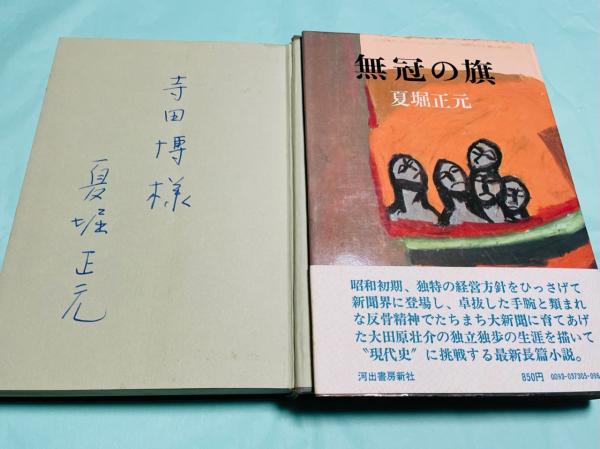 寺田博様
夏堀正元
無冠の旗
夏堀正元
昭和初期、独特の経営方針をひっさげて
新聞界に登場し、卓抜した手腕と類まれ
な反骨精神でたちまち大新聞に育てあげ
た大田原壮介の独立独歩の生涯を描いて
〝現代史〟に挑戦する最新長篇小説。
河出書房新社
850円
0093-037305-096